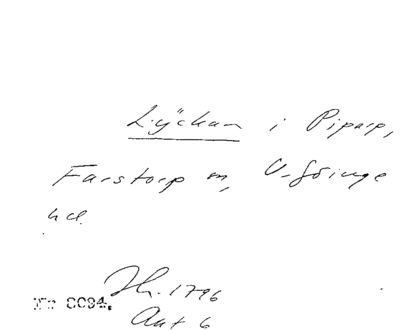 Lyckan i Piparp,
Farstorp sn, V-Göinge
hd.
Th. 1796
Akt 6